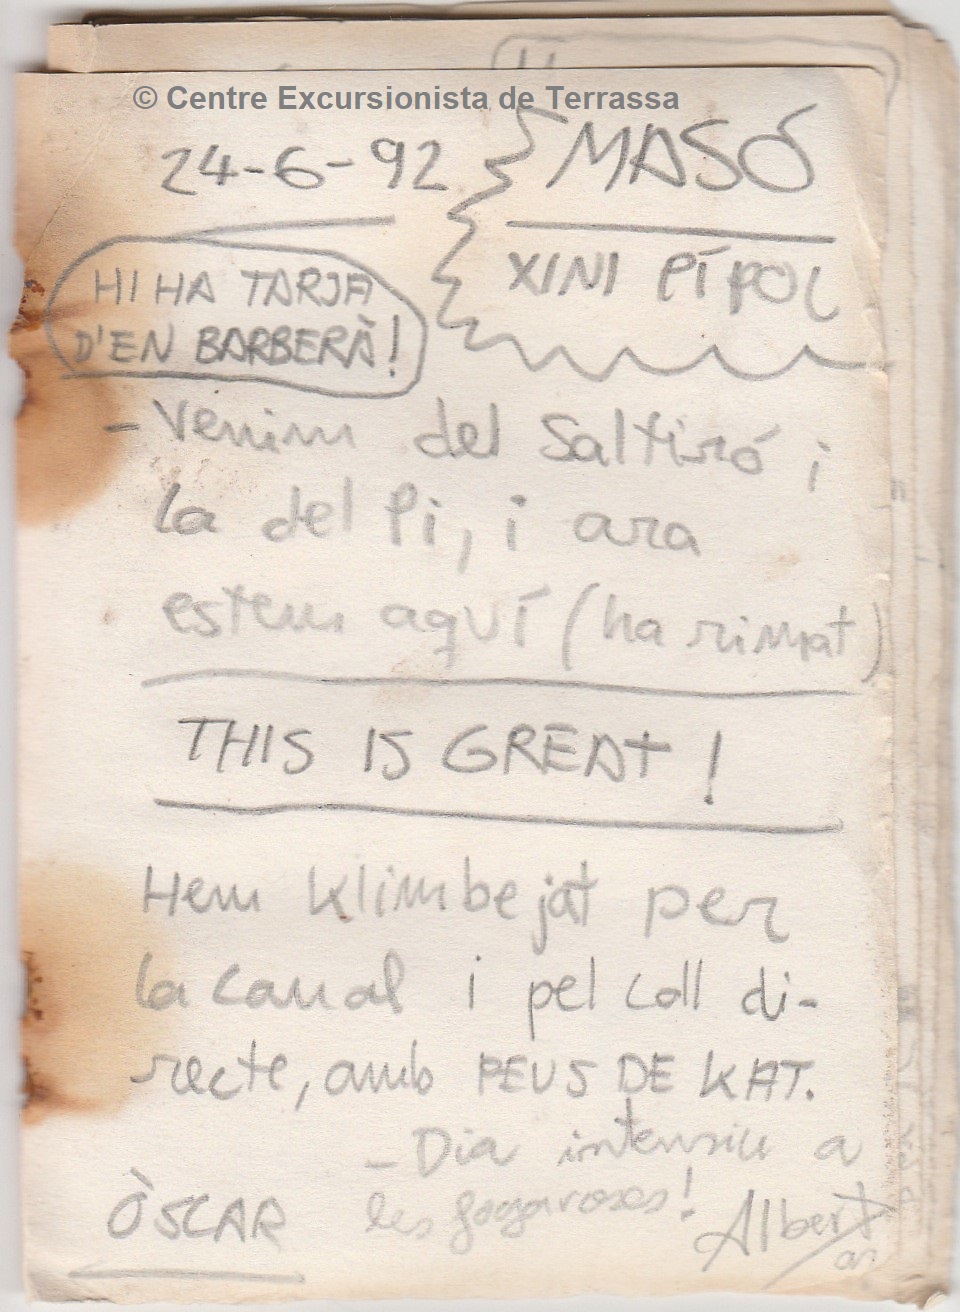 © Centre Excursionista de Terrassa
24-6-92
MASÓ
XINI PÍPOL
HI HA TARJA
D'EN BARBERÀ!
- Venim del Saltiró i
la del Pi, i ara
estem aquí (ha rimat)
THIS IS GREAT!
Hem klimbejat per
la canal i pel coll di-
recte, amb PEUS DE KAT.
- Dia intensiu a
les fogaroses!
ÒSCAR
Albert